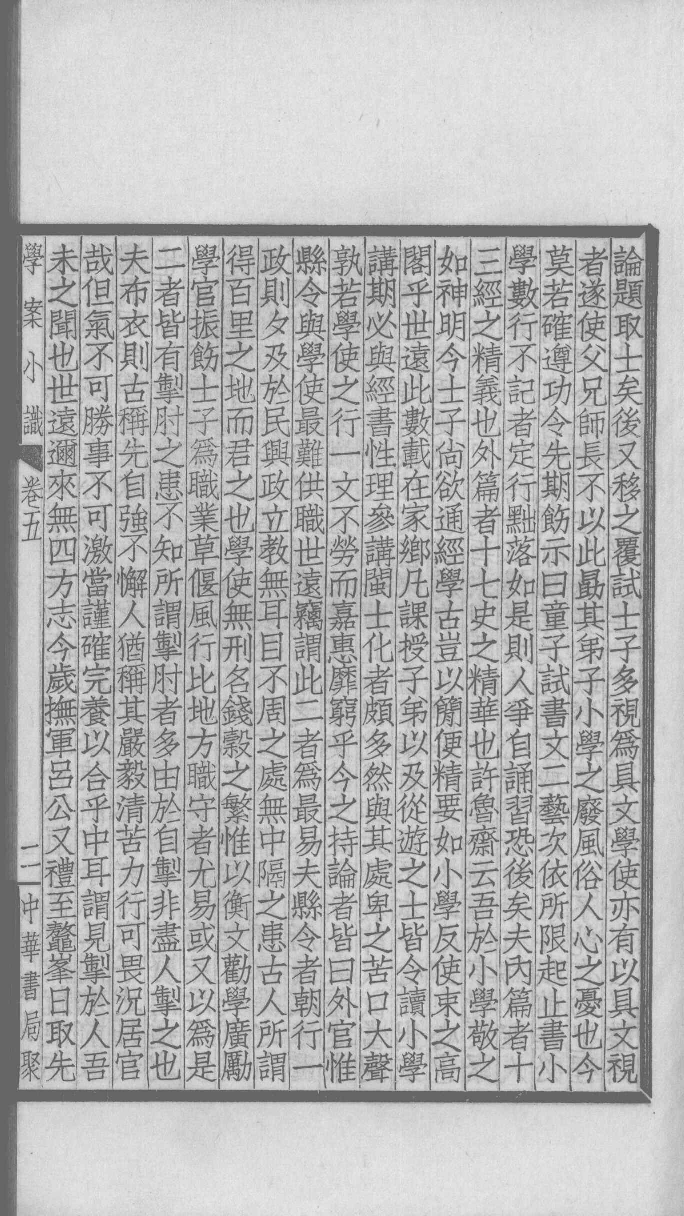 論題取士矣後又移之覆試士子多視爲具文學使亦有以具文視
者遂使父兄師長不以此勗其弟子小學之廢風俗人心之憂也今
莫若確遵功令先期飭示曰童子試書文二藝次依所限起止書小
學數行不記者定行黜落如是則人爭自誦習恐後矣夫內篇者十
三經之精義也外篇者十七史之精華也許魯齋云吾於小學敬之
如神明今士子尙欲通經學古豈以簡便精要如小學反使束之高
閣乎世遠此數載在家鄉凡課授子弟以及從遊之士皆令讀小學
講期必與經書性理參講閩士化者頗多然與其處卑之苦口大聲
孰若學使之行一文不勞而嘉惠靡窮乎今之持論者皆曰外官惟
縣令與學使最難供職世遠竊謂此二者爲最易夫縣令者朝行一
政則夕及於民興政立教無耳目不周之處無中隔之患古人所謂
得百里之地而君之也學使無刑名錢穀之繁惟以衡文勸學廣勵
學官振飭士子爲職業草偃風行比地方職守者尤易或又以爲是
二者皆有掣肘之患不知所謂掣肘者多由於自掣非盡人掣之也
夫布衣則古稱先自強不懈人猶稱其嚴毅清苦力行可畏況居官
哉但氣不可勝事不可激當謹確完養以合乎中耳謂見掣於人吾
未之聞也世遠邇來無四方志今歲撫軍呂公又禮至鼇峯日取先
學案小識 卷五 二 中華書局聚